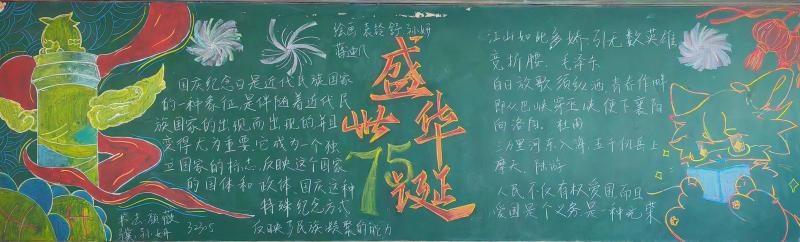 绘画 袁铃舒 孙妍
蒋迪凡
国庆纪念日是近代民族国家
的一种象征,是伴随着近代民
族国家的出现而出现的,并且
变得尤为重要,它成为一个独
立国家的标志,反映这个国家
的国体和政体,国庆这种
特殊纪念方式
反映了民族凝聚的能力
孙妍
盛世华诞
75
江山如此多娇,引无数英雄
竞折腰。毛泽东
白日放歌须纵酒,青春作伴
即从巴峡穿巫峡,便下襄阳
向洛阳。杜甫
三万里河东入海,五千仞岳上
摩天。陆游
人民不仅有权爱国,而且
爱国是个义务,是一种光荣